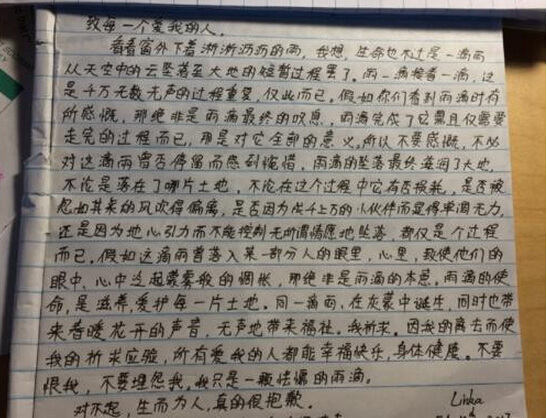 致每一个爱我的人，
看着窗外下着淅淅沥沥的雨，我想，生命也不过是一滴雨
从天空中的云坠落至大地的短暂过程罢了。雨一滴接着一滴，这
是千万无数无声的过程重复，仅此而已。假如你们看到雨滴时有
所感慨，那绝非是雨滴最终的叹息，雨滴完成了它需且仅需要
走完的过程而已，那是对它全部的意义。所以不要感慨，不必
对这滴雨曾否停留而感到惋惜。雨滴的坠落最终滋润了大地，
不论是落在了哪片土地，不论在这个过程中它有否损耗，是否被
忽如其来的风吹得偏离，是否因为成千上万的小伙伴而显得单调无力，
还是因为地心引力而不能控制无所谓情愿地坠落，都仅是个过程
而已。假如这滴雨曾落入某一部分人的眼里，心里，致使他们的
眼中，心中泛起蒙雾般的惆怅，那绝非是雨滴的本意。雨滴的使
命，是滋养，爱护每一片土地。同一滴雨，在灰蒙中诞生，同时也带
来春暖花开的声音，无声地带来福祉。我祈求，因我的离去而使
我的祈求应验，所有爱我的人都能幸福快乐，身体健康。不要
恨我，不要埋怨我，我只是一颗怯懦的雨滴。
对不起，生而为人，真的很抱歉。
Linka